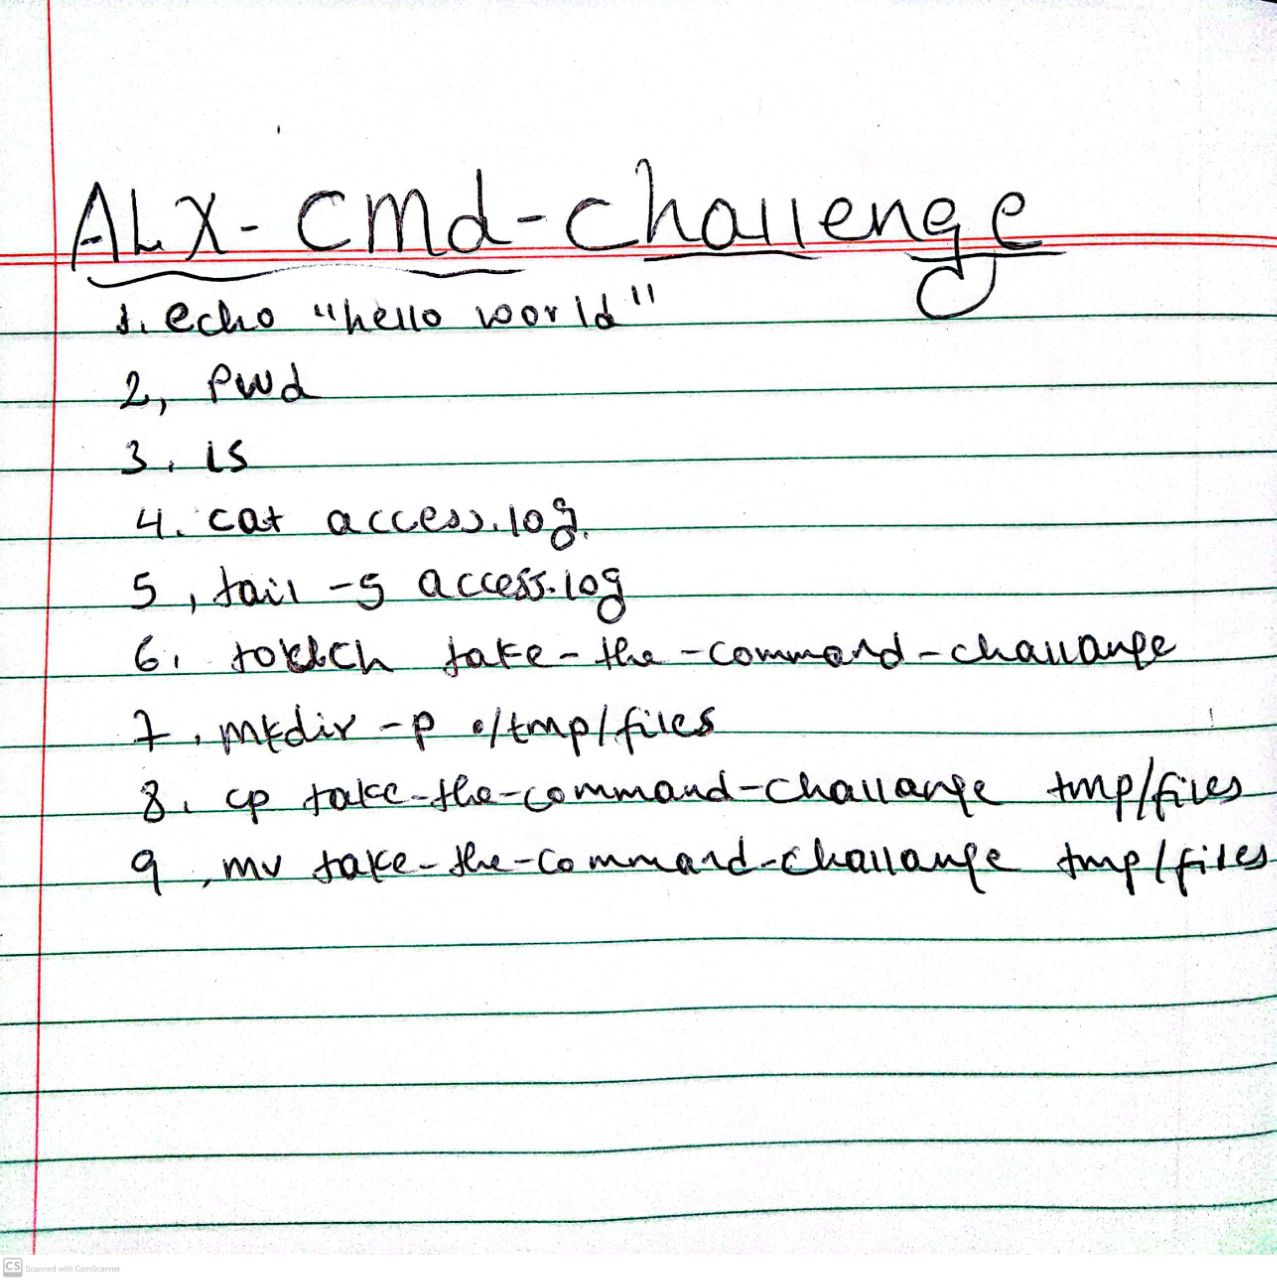 ALX-cmd-challenge
1. echo "hello world"
2, pwd
3. ls
4. cat access.log.
5, tail -5 access.log
6. touch take-the-command-challange
7. mkdir -p ./tmp/files
8. cp take-the-command-challange tmp/files
9, mv take-the-command-challange tmp/files
CS Scanned with CamScanner